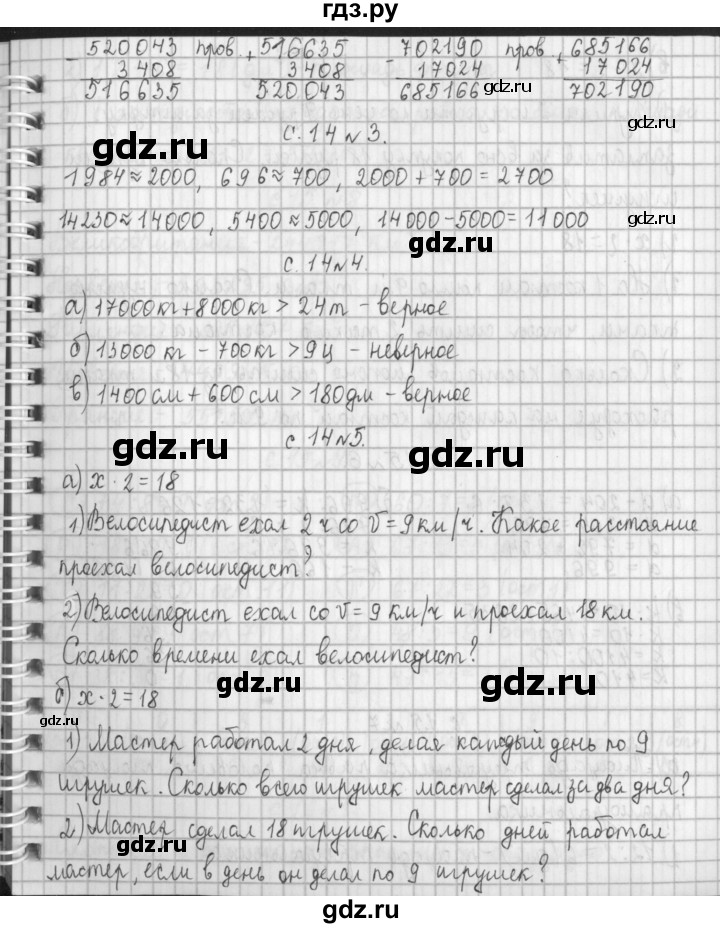 гдз.ру
- 520043 пров. + 516635 - 702190 пров. + 685166
3408 3408 17024 17024
516635 520043 685166 702190
gdz.ru
с. 14 №3.
gdz.ru
gdz.ru
1984≈2000, 696≈700, 2000+700=2700
14230≈14000, 5400≈5000, 14000-5000=11000
gdz.ru
gdz.ru
с. 14№4.
а) 17000кг+8000кг > 24т - верное
gdz.ru
б) 13000 кг - 700кг > 9ц - неверное
в) 1400см + 600см > 180дм - верное
gdz.ru
gdz.ru
с 14№5.
а) x · 2 = 18
1) Велосипедист ехал 2 ч со V = 9 км/ч. Какое расстаяние
проехал велосипедист?
gdz.ru
gdz.ru
2) Велосипедист ехал со V = 9 км/ч и проехал 18 км.
Сколько времени ехал велосипедист?
gdz.ru
gdz.ru
б) x · 2 = 18
gdz.ru
1) Мастер работал 2 дня, делая каждый день по 9
игрушек. Сколько всего игрушек мастер сделал за два дня?
gdz.ru
2) Мастер сделал 18 игрушек. Сколько дней работал
gdz.ru
gdz.ru
мастер, если в день он делал по 9 игрушек?
gdz.ru